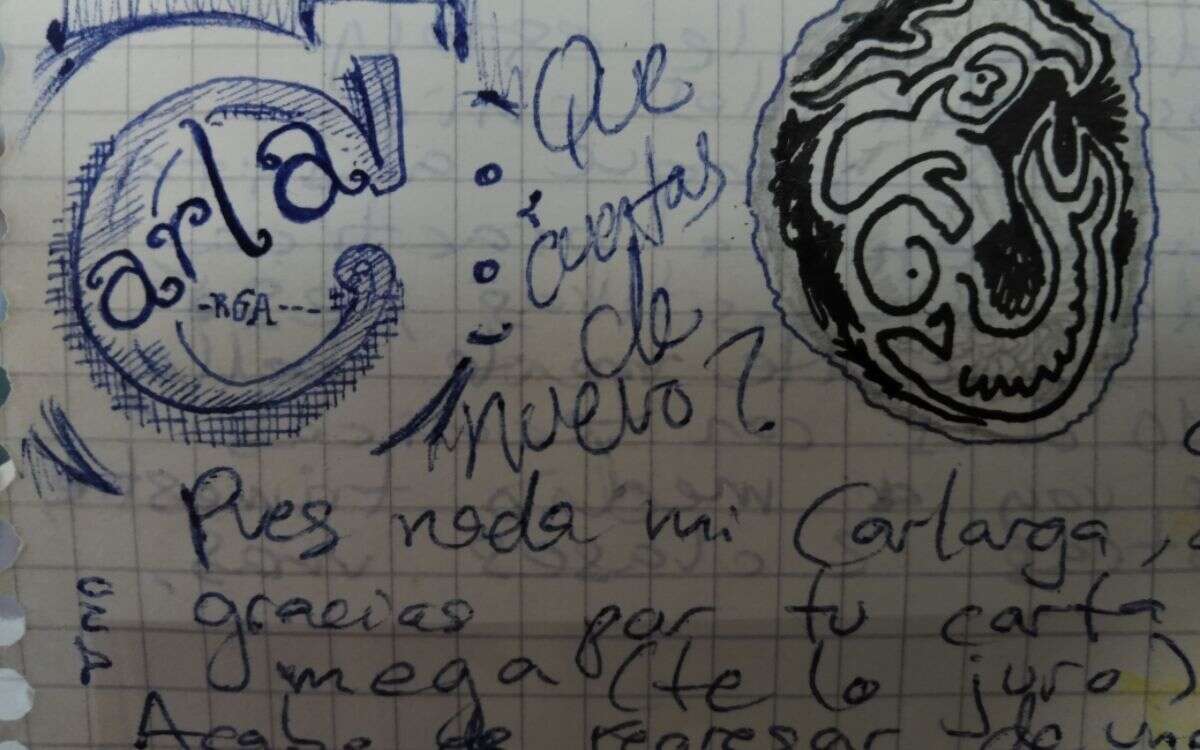 Carla
-RGA---
Que
cuentas
de
nuevo?
Pues nada mi Carlarga,
gracias por tu carta
mega (te lo juro)
Acabo de regresar de un